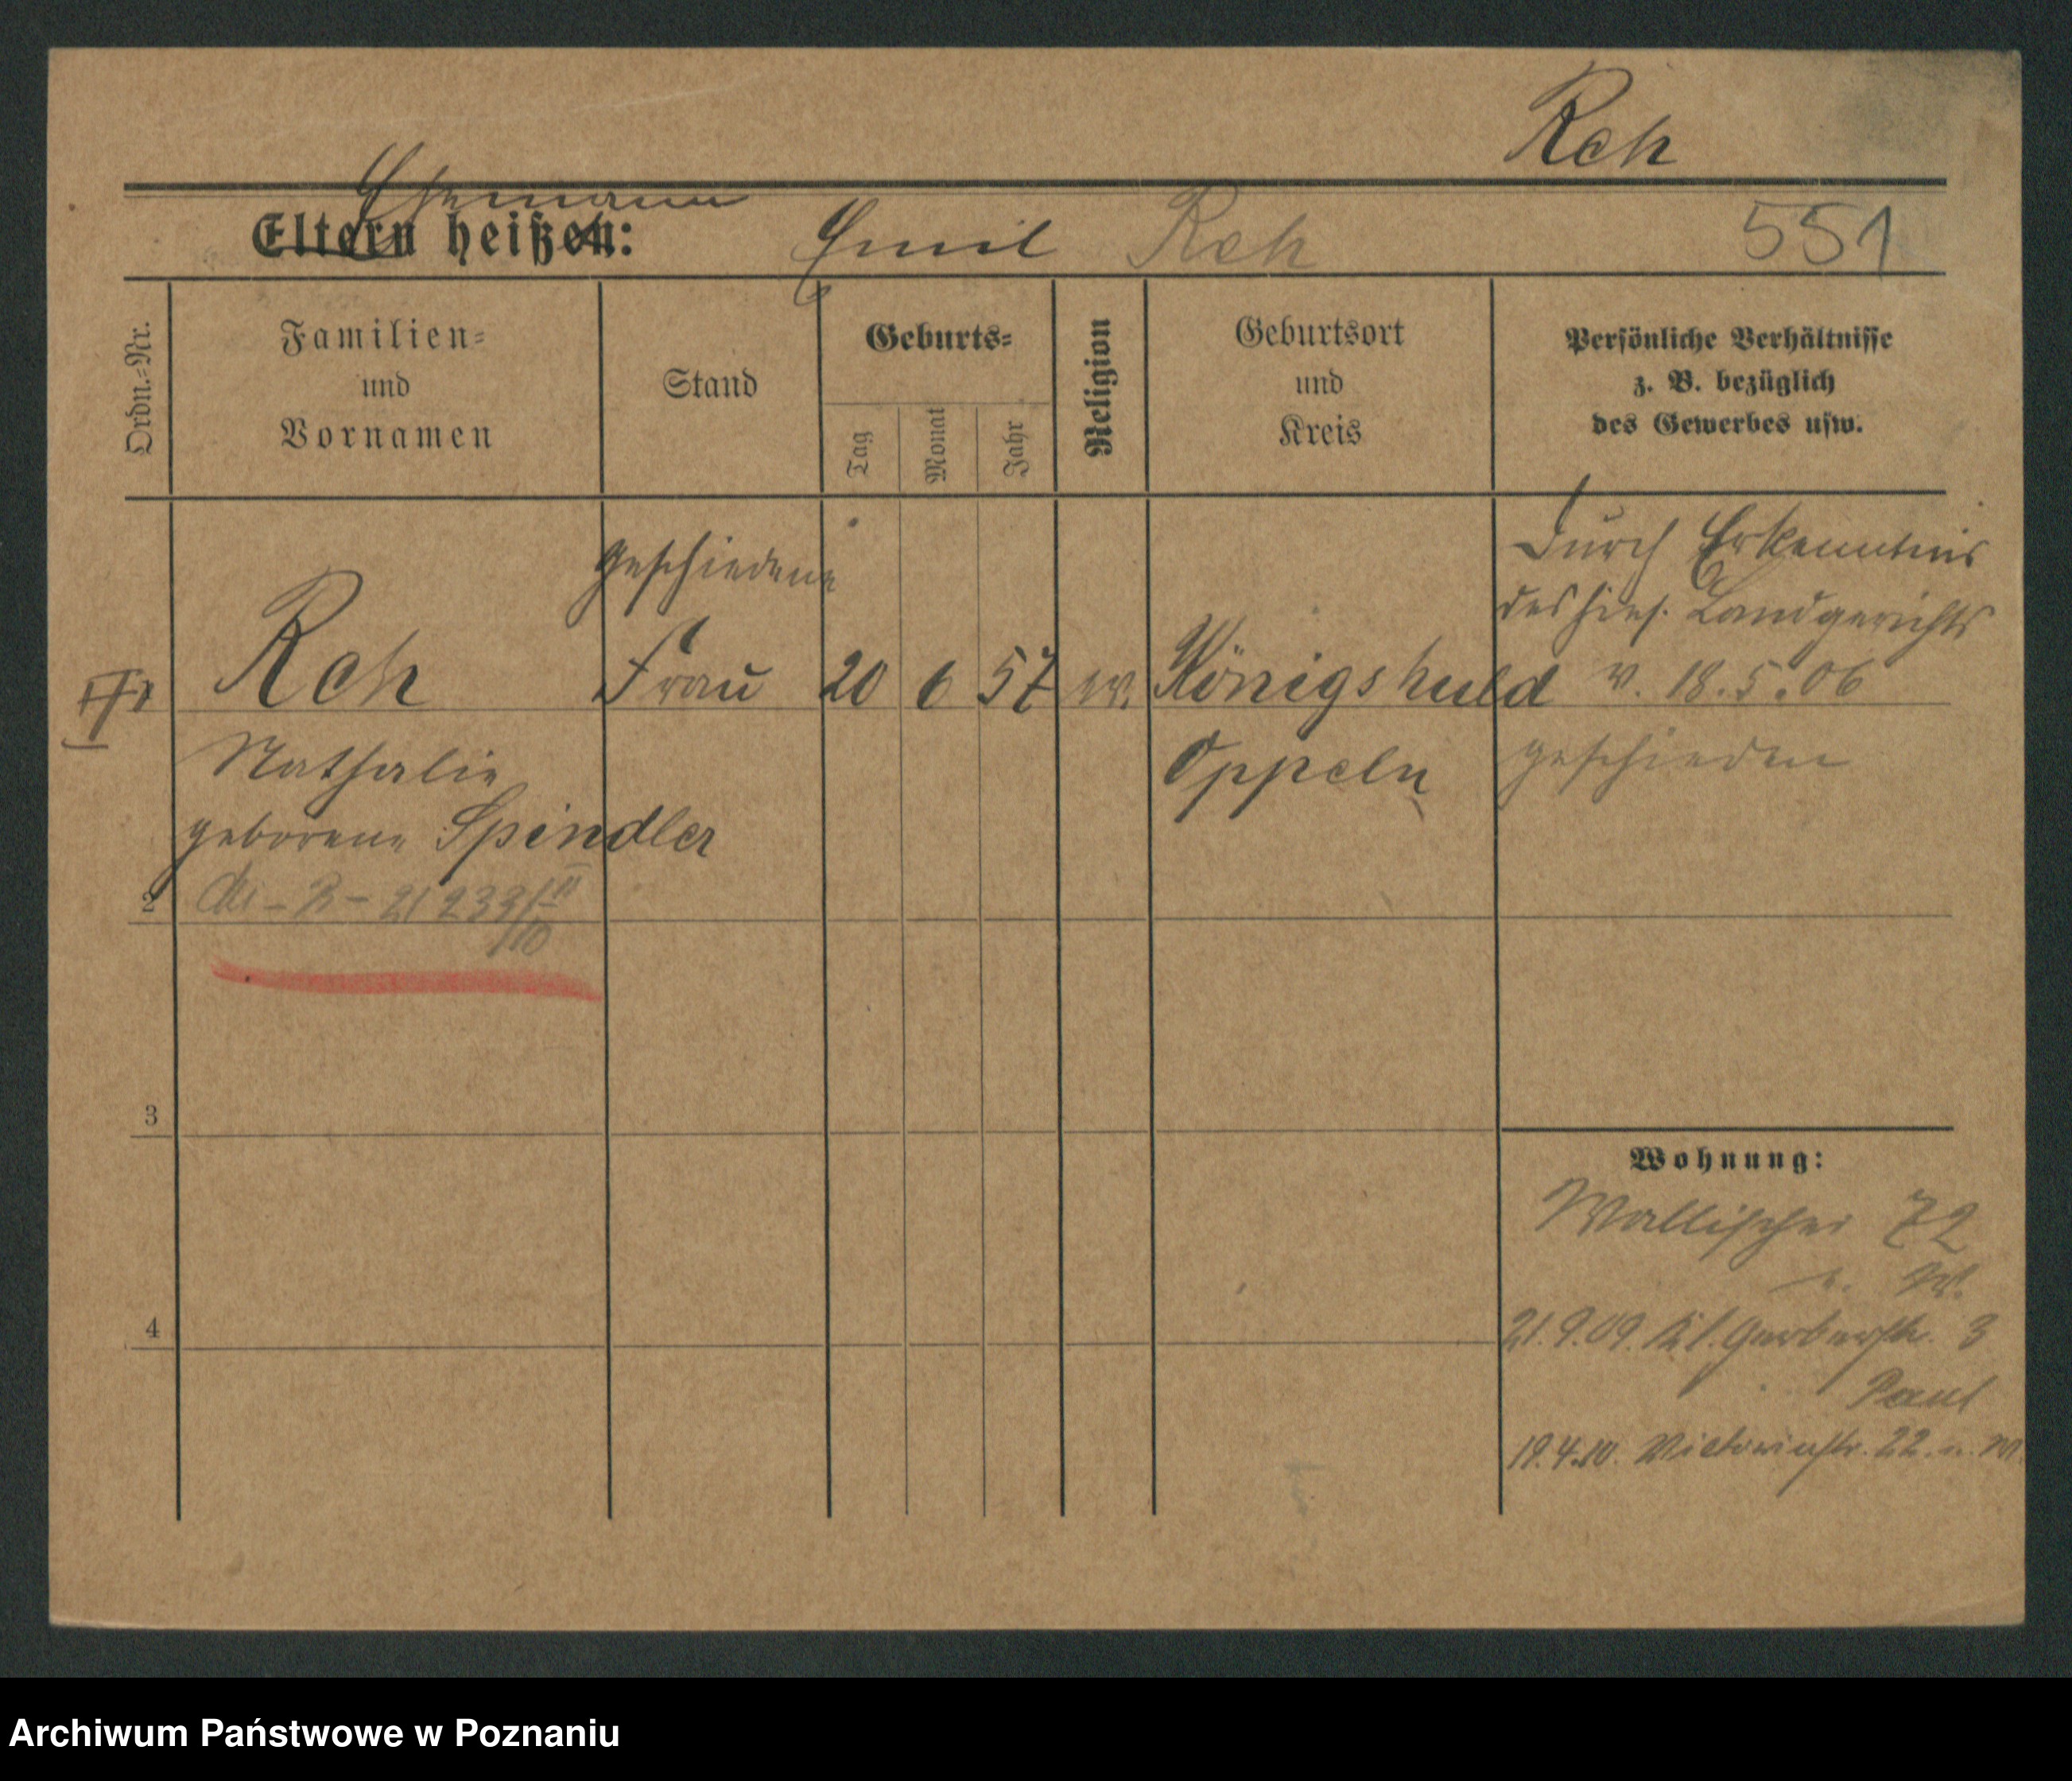 Reh
Ehemann
Eltern heißen: Emil Reh 551
Ordn.-Nr.
Familien-
und
Vornamen
Stand
Geburts-
Tag
Monat
Jahr
Religion
Geburtsort
und
Kreis
Persönliche Verhältnisse
z. B. bezüglich
des Gewerbes usw.
geschiedene
Reh Frau 20 6 57 ev. Königshuld
Nathalie Oppeln
geborene Spindler
Durch Erkenntnis
des hies. Landgerichts
v. 18.5.06
geschieden
2
3
4
Wohnung:
Wallischei 72
21.9.09. Kl. Gerberstr. 3
Paul
19.4.10. Victoriastr. 22
Archiwum Państwowe w Poznaniu